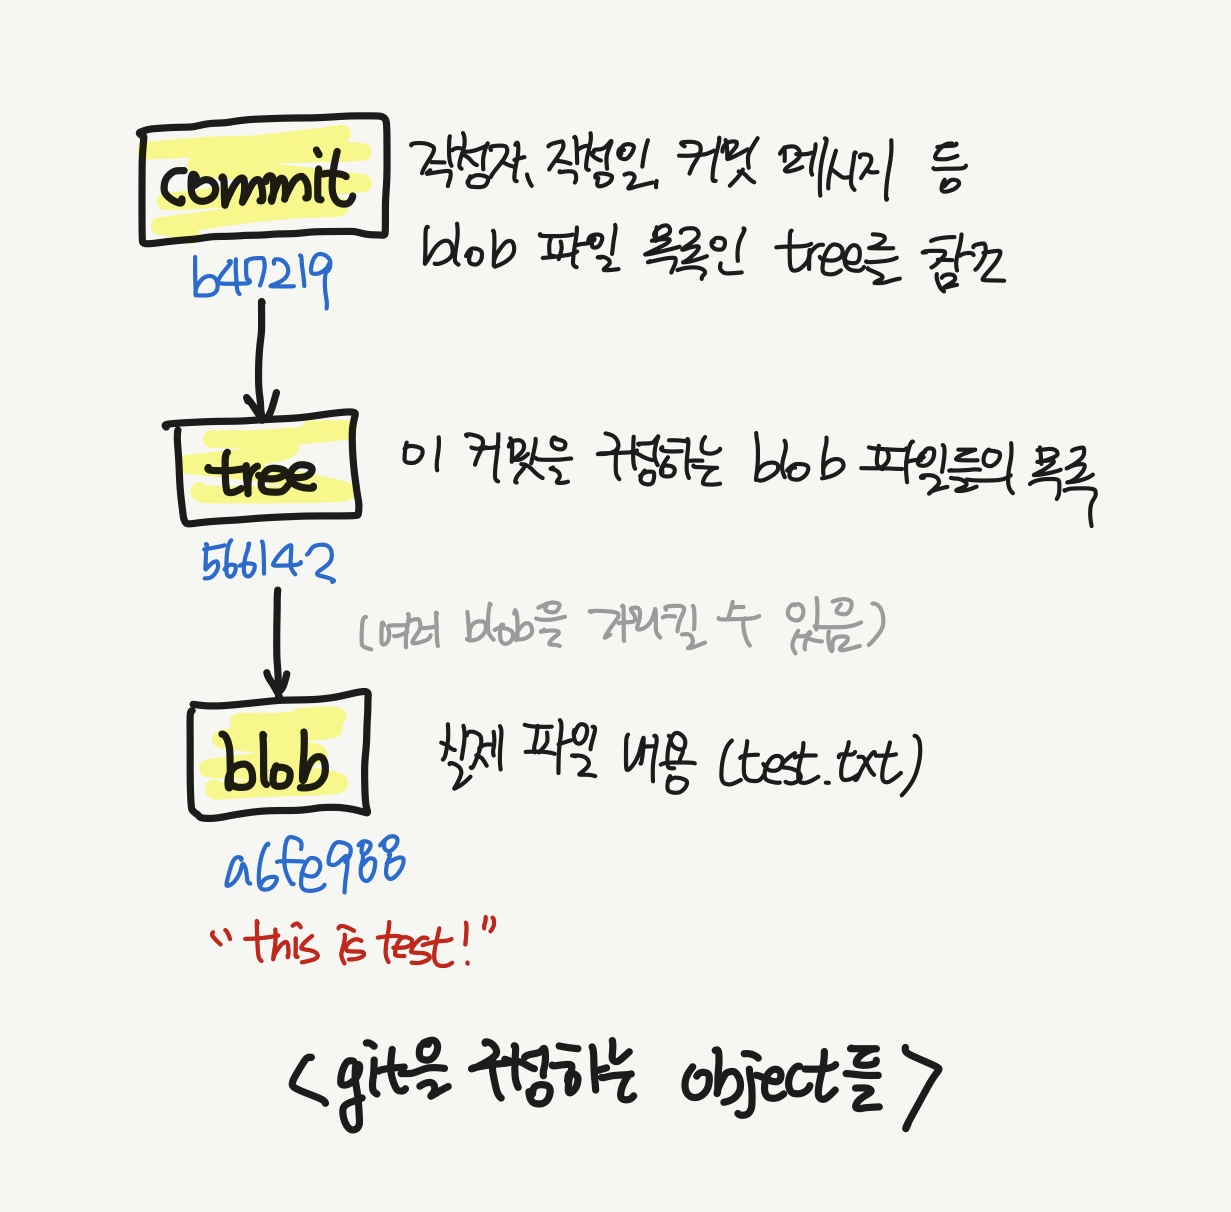 commit
작성자, 작성일, 커밋 메세지 등
blob 파일 목록인 tree를 참조
b47219
tree
이 커밋은 구성하는 blob 파일들의 목록
566142
(여러 blob을 가리킬 수 있음)
blob
실제 파일 내용 (test.txt)
a6fe988
"this is test!"
<git을 구성하는 object들>